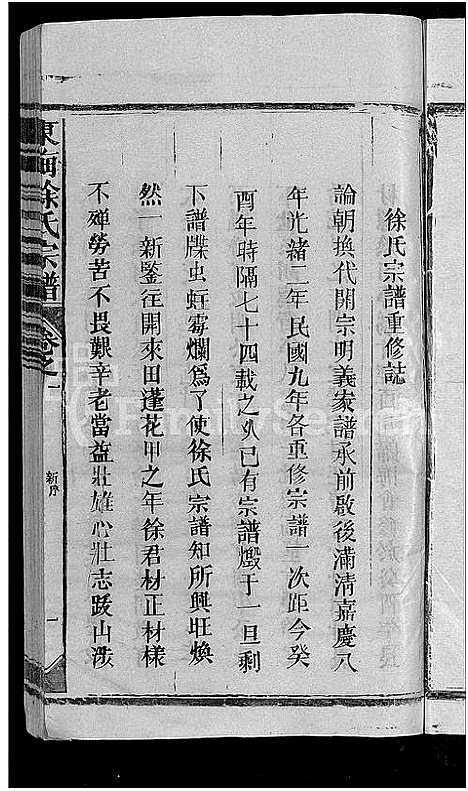 徐氏宗譜重修誌
論朝換代開宗明義家譜承前啟後滿清嘉慶八
年光緒二年民國九年各重修宗譜一次距今癸
酉年時隔七十四載之久已有宗譜燬于一旦剩
下譜牒虫蛀霉爛為了使徐氏宗譜知所興旺煥
然一新鑒往開來田蓬花甲之年徐君材正材樣
不殫勞苦不畏艱辛老當益壯雄心壯志跋山涉
東海徐氏宗譜
卷之一
新序
一
FamilySearch